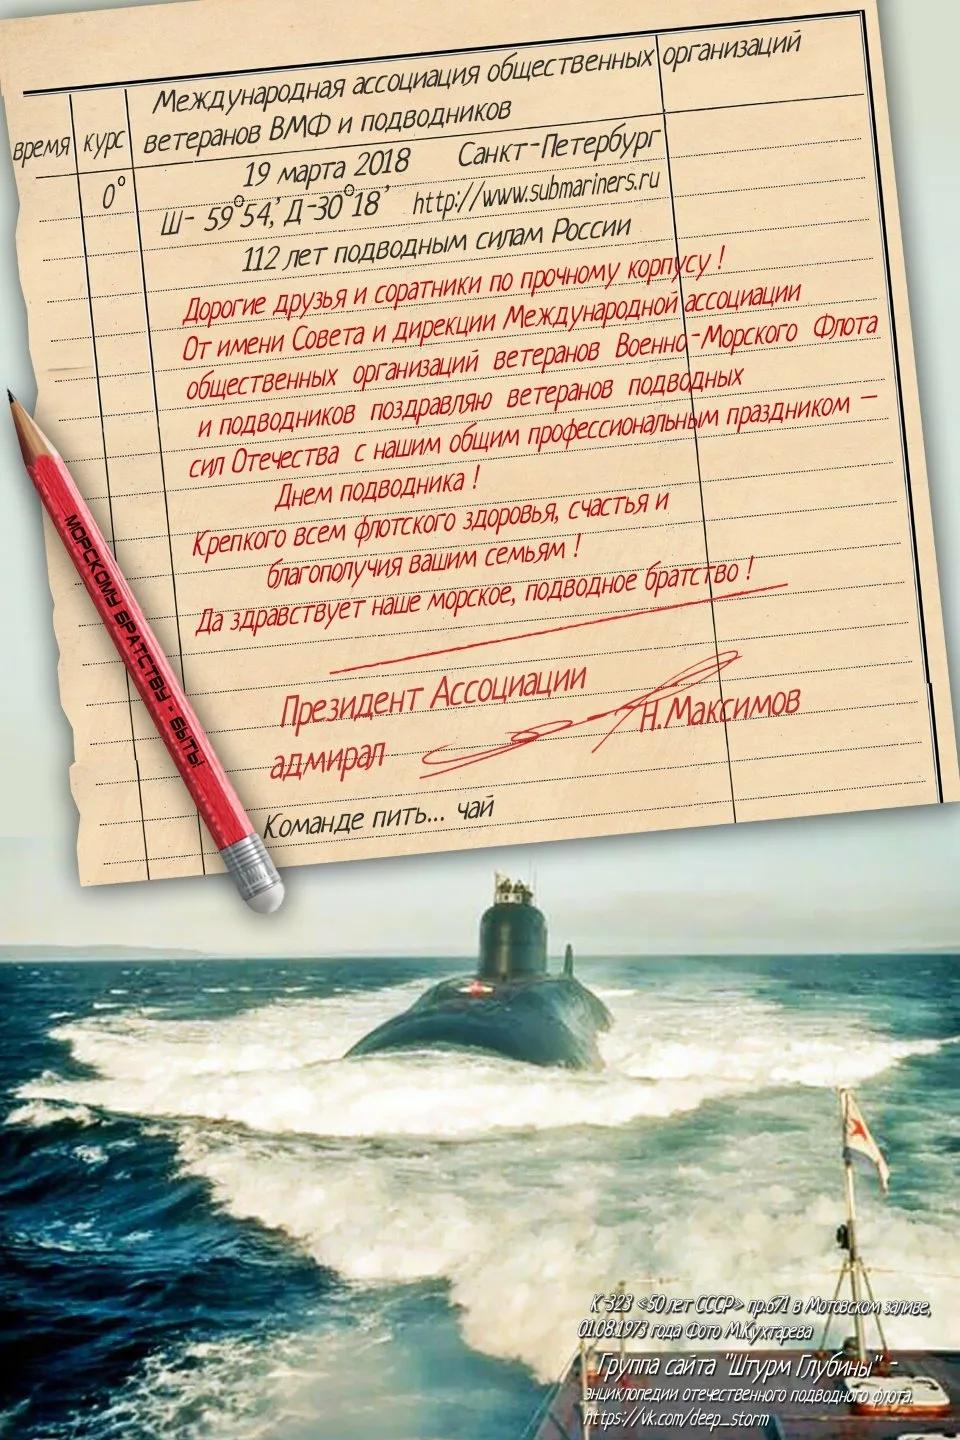 Международная ассоциация общественных организаций
ветеранов ВМФ и подводников
время курс
0° 19 марта 2018 Санкт-Петербург
Ш- 59°54,' Д-30°18' http://www.submariners.ru
112 лет подводным силам России
Дорогие друзья и соратники по прочному корпусу !
От имени Совета и дирекции Международной ассоциации
общественных организаций ветеранов Военно-Морского Флота
и подводников поздравляю ветеранов подводных
сил Отечества с нашим общим профессиональным праздником –
Днем подводника !
Крепкого всем флотского здоровья, счастья и
благополучия вашим семьям !
Да здравствует наше морское, подводное братство !
Президент Ассоциации
адмирал Н.Максимов
Команде пить... чай
МОРСКОМУ БРАТСТВУ - БЫТЬ!
К-323 «50 лет СССР» пр.671 в Мотовском заливе,
01.08.1973 года Фото М.Кухтарева
Группа сайта "Штурм Глубины" -
энциклопедии отечественного подводного флота.
https://vk.com/deep_storm